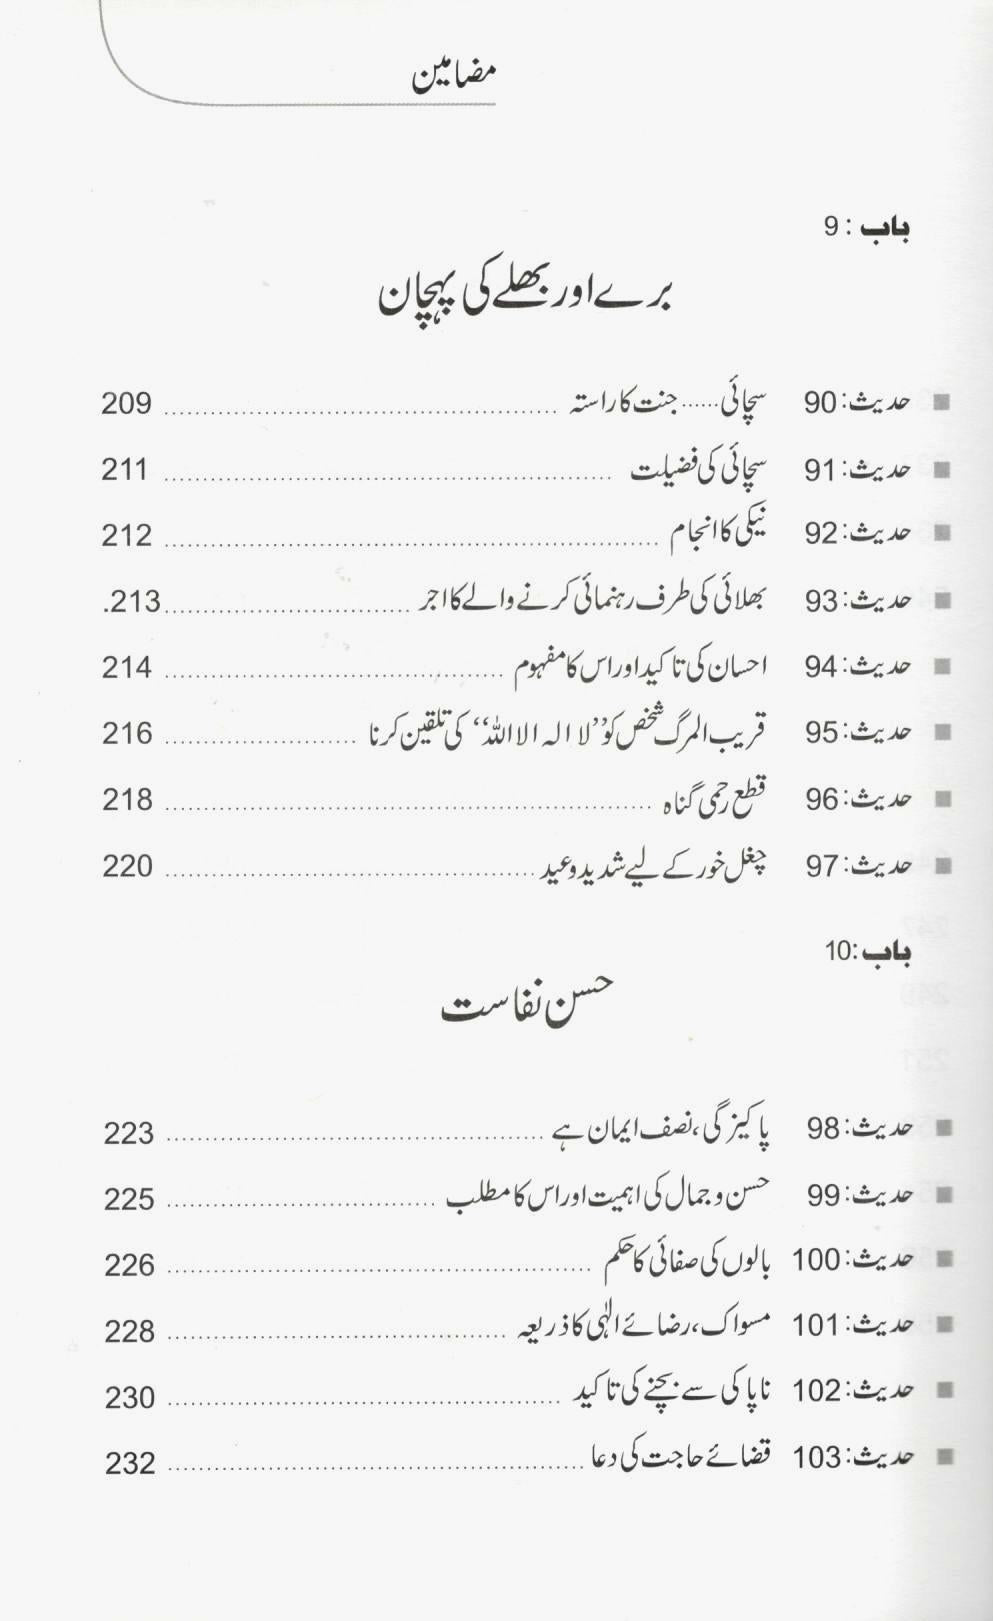 مضامین
باب : 9
برے اور بھلے کی پہچان
حدیث: 90 سچائی...... جنت کا راستہ ........................ 209
حدیث: 91 سچائی کی فضیلت ........................ 211
حدیث: 92 نیکی کا انجام ........................ 212
حدیث: 93 بھلائی کی طرف رہنمائی کرنے والے کا اجر ........................ 213.
حدیث: 94 احسان کی تاکید اور اس کا مفہوم ........................ 214
حدیث: 95 قریب المرگ شخص کو ”لا الہ الا اللہ“ کی تلقین کرنا ........................ 216
حدیث: 96 قطع رحمی گناہ ........................ 218
حدیث: 97 چغل خور کے لیے شدید وعید ........................ 220
باب :10
حسن نفاست
حدیث: 98 پاکیزگی، نصف ایمان ہے ........................ 223
حدیث: 99 حسن و جمال کی اہمیت اور اس کا مطلب ........................ 225
حدیث: 100 بالوں کی صفائی کا حکم ........................ 226
حدیث: 101 مسواک، رضائے الٰہی کا ذریعہ ........................ 228
حدیث: 102 ناپاکی سے بچنے کی تاکید ........................ 230
حدیث: 103 قضائے حاجت کی دعا ........................ 232